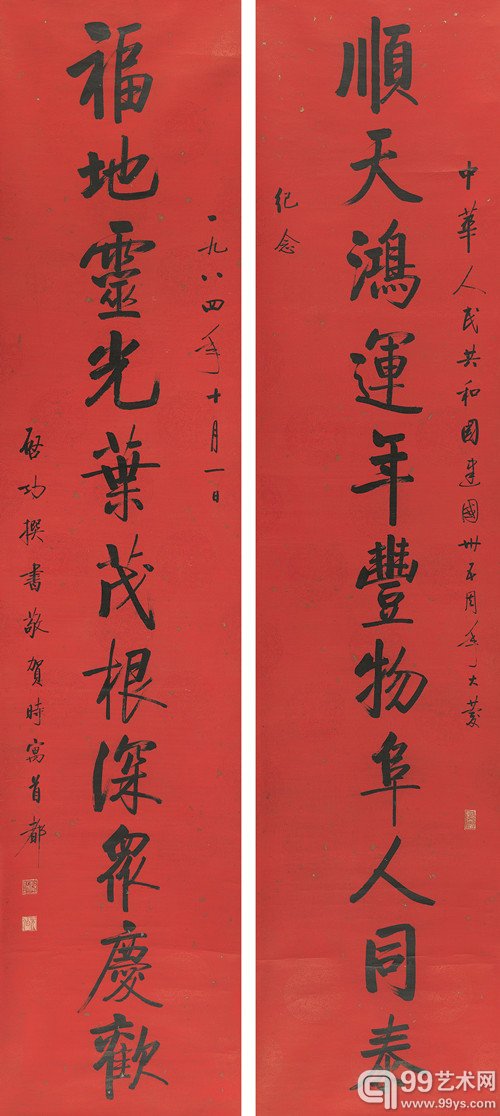 中華人民共和國建國卅五周年大慶
順天鴻運年豐物阜人同泰
紀念
一九八四年十月一日
福地靈光葉茂根深眾慶歡
啟功撰書敬賀時寓首都
99艺术网
www.99ys.com